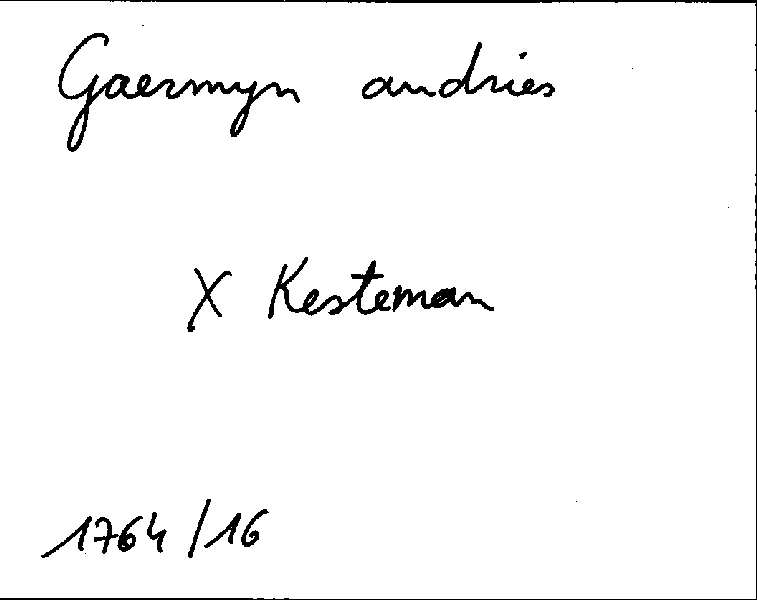 Gaermyn andries
X Kesteman
1764/16